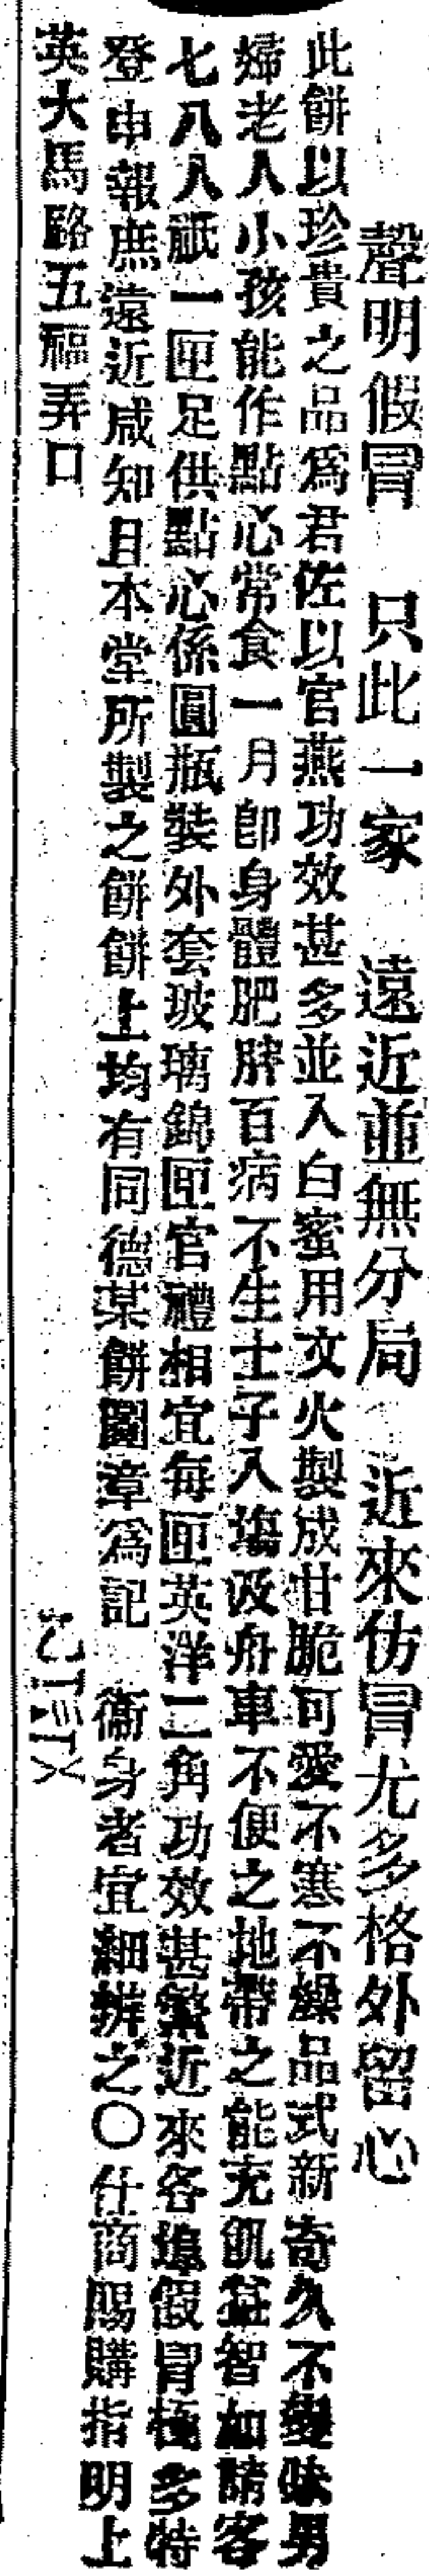 聲明假冒　只此一家　遠近並無分局　近來仿冒尤多格外留心
此餅以珍貴之品爲君佐以官燕功效甚多並入白蜜用文火製成甘脆可愛不寒不燥品式新奇久不變味男
婦老人小孩能作點心常食一月卽身體肥胖百病不生士子入塲及舟車不便之地帶之能充飢益智如請客
七八人祇一匣足供點心係圓瓶裝外套玻璃錦匣官禮相宜每匣英洋二角功效甚繁近來各埠假冒極多特
登申報庶遠近咸知且本堂所製之餅餅上均有同德某餅圖章爲記　衞身者宜細辦之〇仕商賜購指明上
英大馬路五福弄口